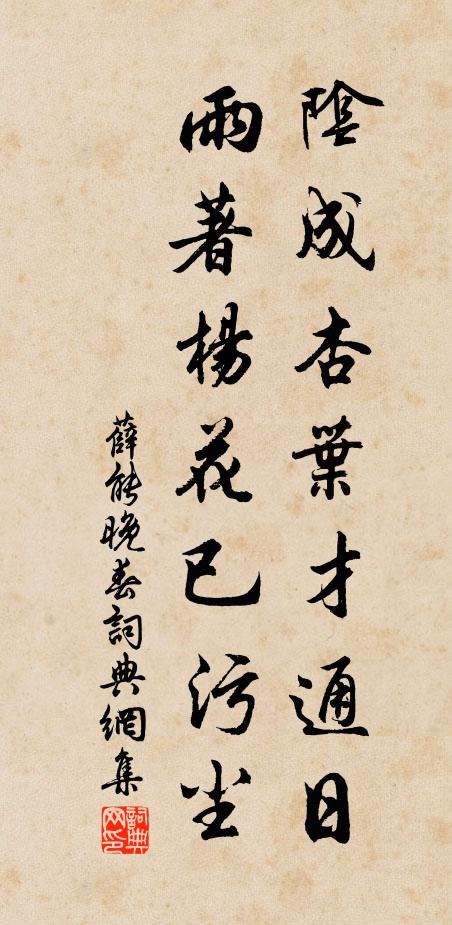 陰成杏葉才通日
雨著楊花已污尘
薛能晚春詞典網集
詞典
网印